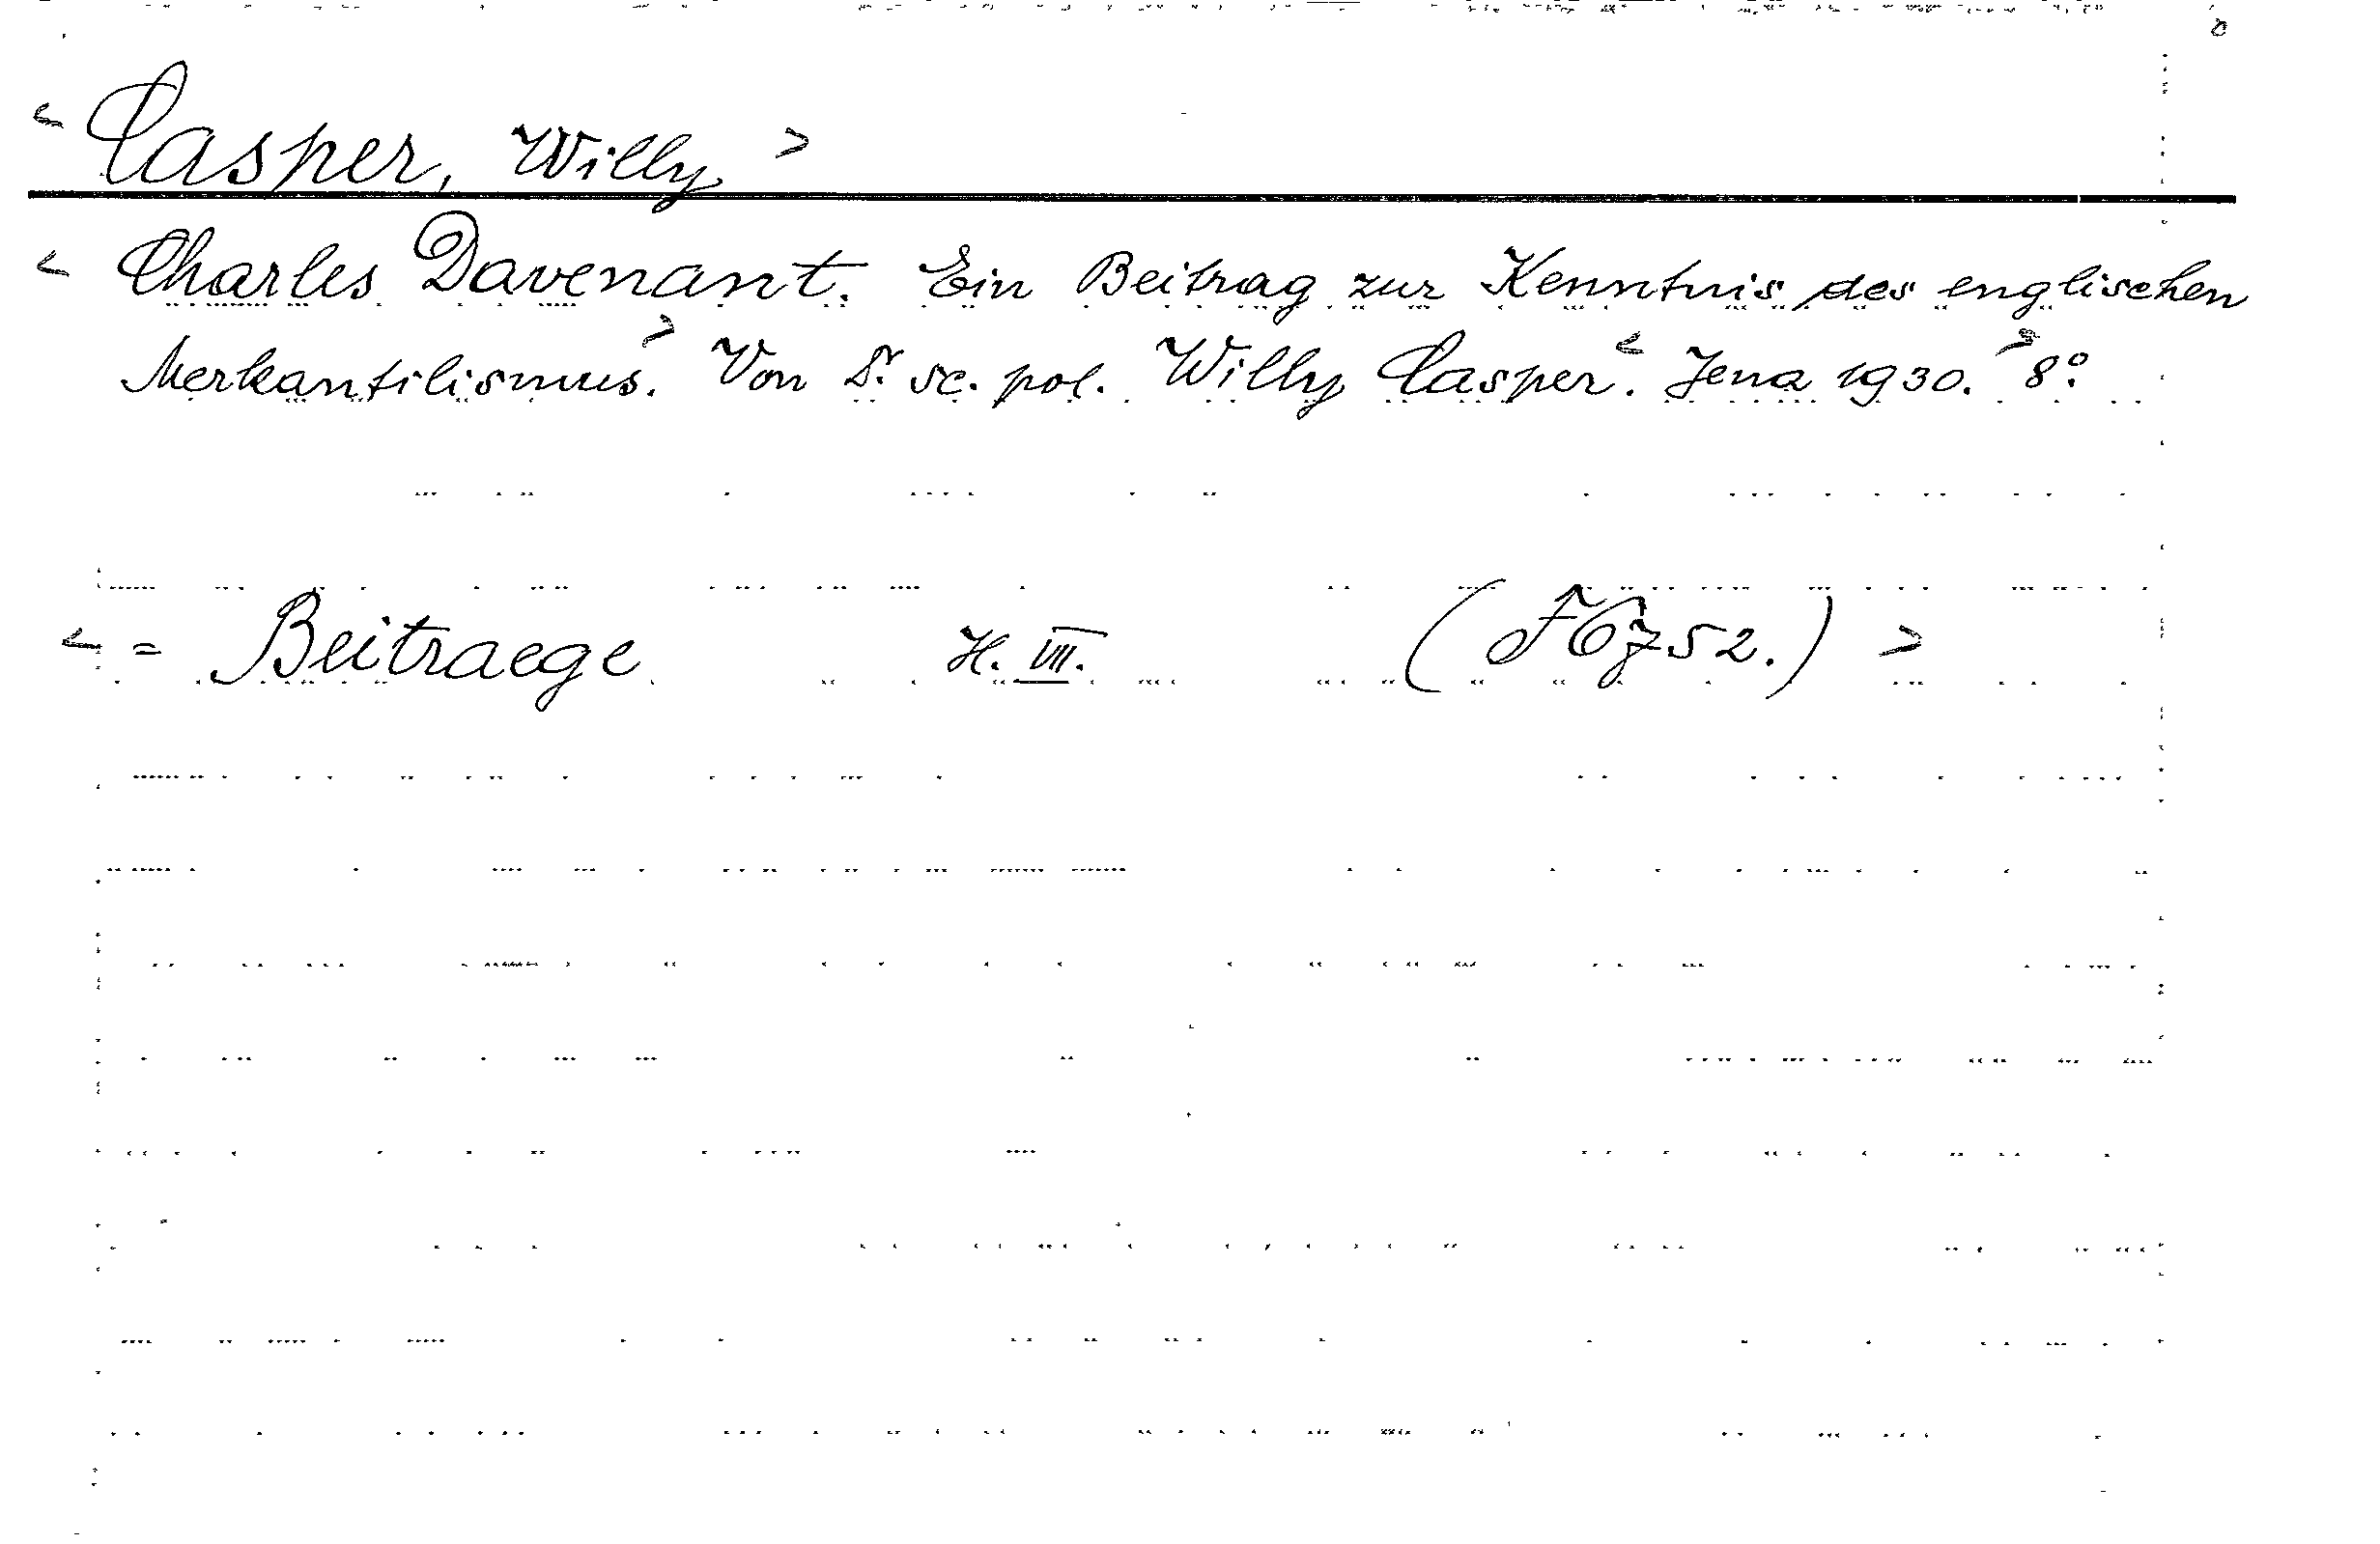 < Casper, Willy >
< Charles Davenant. Ein Beitrag zur Kenntnis des englischen
Merkantilismus. > Von Dr. sc. pol. Willy Casper. < Jena 1930. > 8°.
< = Beitraege H. VII. >